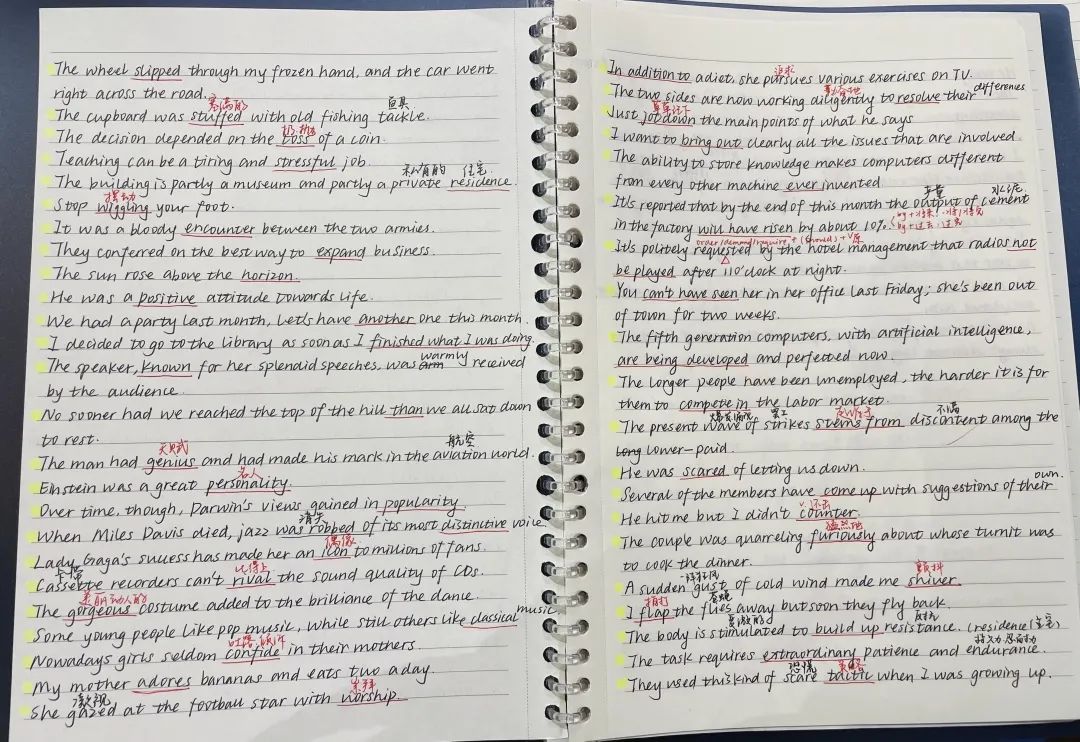 The wheel slipped through my frozen hand, and the car went
right across the road.
塞满的 鱼具
The cupboard was stuffed with old fishing tackle.
扔,抛
The decision depended on the toss of a coin.
Teaching can be a tiring and stressful job.
私有的 住宅
The building is partly a museum and partly a private residence.
摆动
Stop wiggling your foot.
It was a bloody encounter between the two armies.
They conferred on the best way to expand business.
The sun rose above the horizon.
He was a positive attitude towards life.
We had a party last month, Let's have another one this month.
I decided to go to the library as soon as I finished what I was doing.
warmly
The speaker, known for her splendid speeches, was received
by the audience.
No sooner had we reached the top of the hill than we all sat down
to rest.
天赋 航空
The man had genius and had made his mark in the aviation world.
名人
Einstein was a great personality.
Over time, though, Darwin's views gained in popularity.
消失
When Miles Davis died, jazz was robbed of its most distinctive voice.
偶像
Lady Gaga's success has made her an icon to millions of fans.
卡带 比得上
Cassette recorders can't rival the sound quality of CDs.
美丽动人的
The gorgeous costume added to the brilliance of the dance.
Some young people like pop music, while still others like classical music.
吐露
Nowadays girls seldom confide in their mothers.
My mother adores bananas and eats two a day.
激视 崇拜
She gazed at the football star with worship.
追求
In addition to a diet, she pursues various exercises on TV.
勤奋地
The two sides are now working diligently to resolve their differences
草草记下
Just jot down the main points of what he says
I want to bring out clearly all the issues that are involved.
The ability to store knowledge makes computers different
from every other machine ever invented.
产量 水泥
It's reported that by the end of this month the output of cement
in the factory will have risen by about 10%.
order/demand/require + (should) + V原
It's politely requested by the hotel management that radios not
be played after 11 o'clock at night.
You can't have seen her in her office last Friday; she's been out
of town for two weeks.
The fifth generation computers, with artificial intelligence,
are being developed and perfected now.
The longer people have been unemployed, the harder it is for
them to compete in the labor market.
罢工 不满
The present wave of strikes stems from discontent among the
long lower-paid.
He was scared of letting us down.
Several of the members have come up with suggestions of their own.
v. 还击
He hit me but I didn't counter.
猛烈地
The couple was quarreling furiously about whose turn it was
to cook the dinner.
一阵狂风 颤抖
A sudden gust of cold wind made me shiver.
拍打 苍蝇
I flap the flies away but soon they fly back.
受激的 反抗
The body is stimulated to build up resistance. (residence住宅)
持久力,忍耐力
The task requires extraordinary patience and endurance.
恐慌 策略
They used this kind of scare tactic when I was growing up.